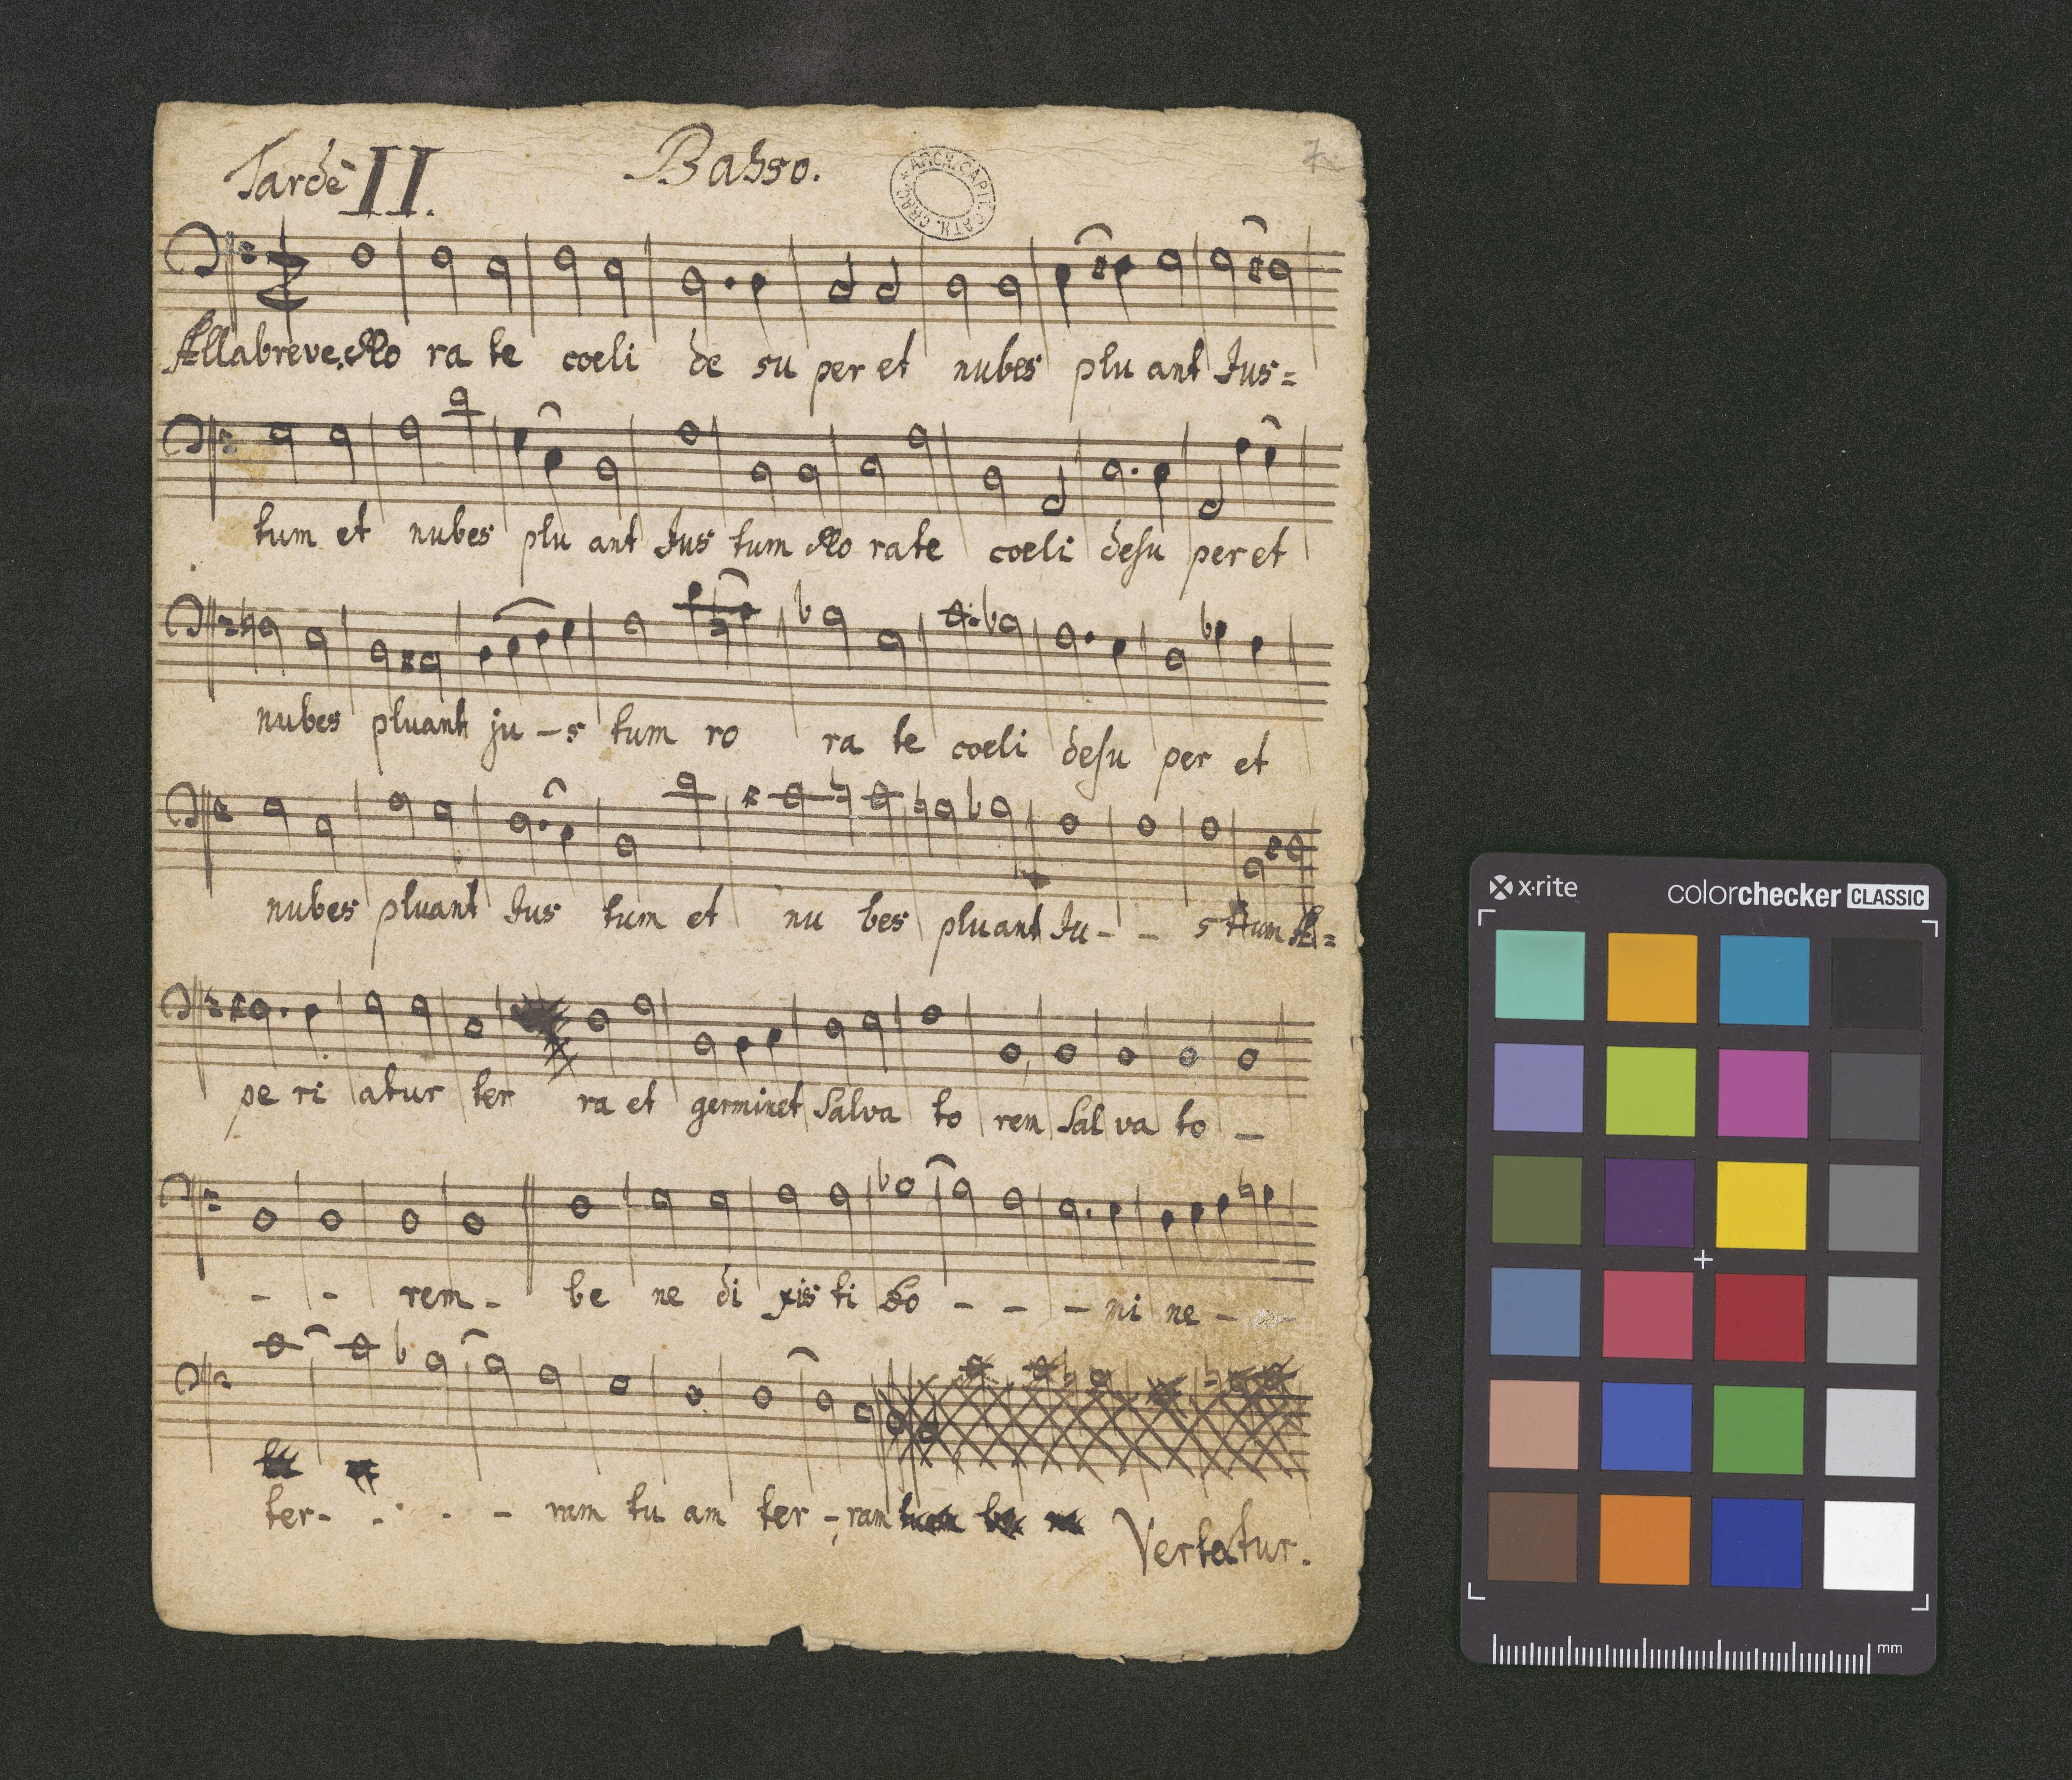 Tardè II. Basso.
ARCH. CAPIT. CATH. CRAC.
Allabreve. Ro ra te coeli de su per et nubes plu ant Jus=
tum et nubes plu ant Jus tum Ro rate coeli desu per et
nubes pluant ju - s tum ro ra te coeli desu per et
nubes pluant Jus tum et nu bes pluant Ju - - s tum A=
pe ri atur ter ra et germinet Salva to rem Sal va to -
- - rem - be ne di xis ti Do - - - ni ne -
ter - - - - ram tu am ter - ram
Vertatur.
x·rite colorchecker CLASSIC
mm